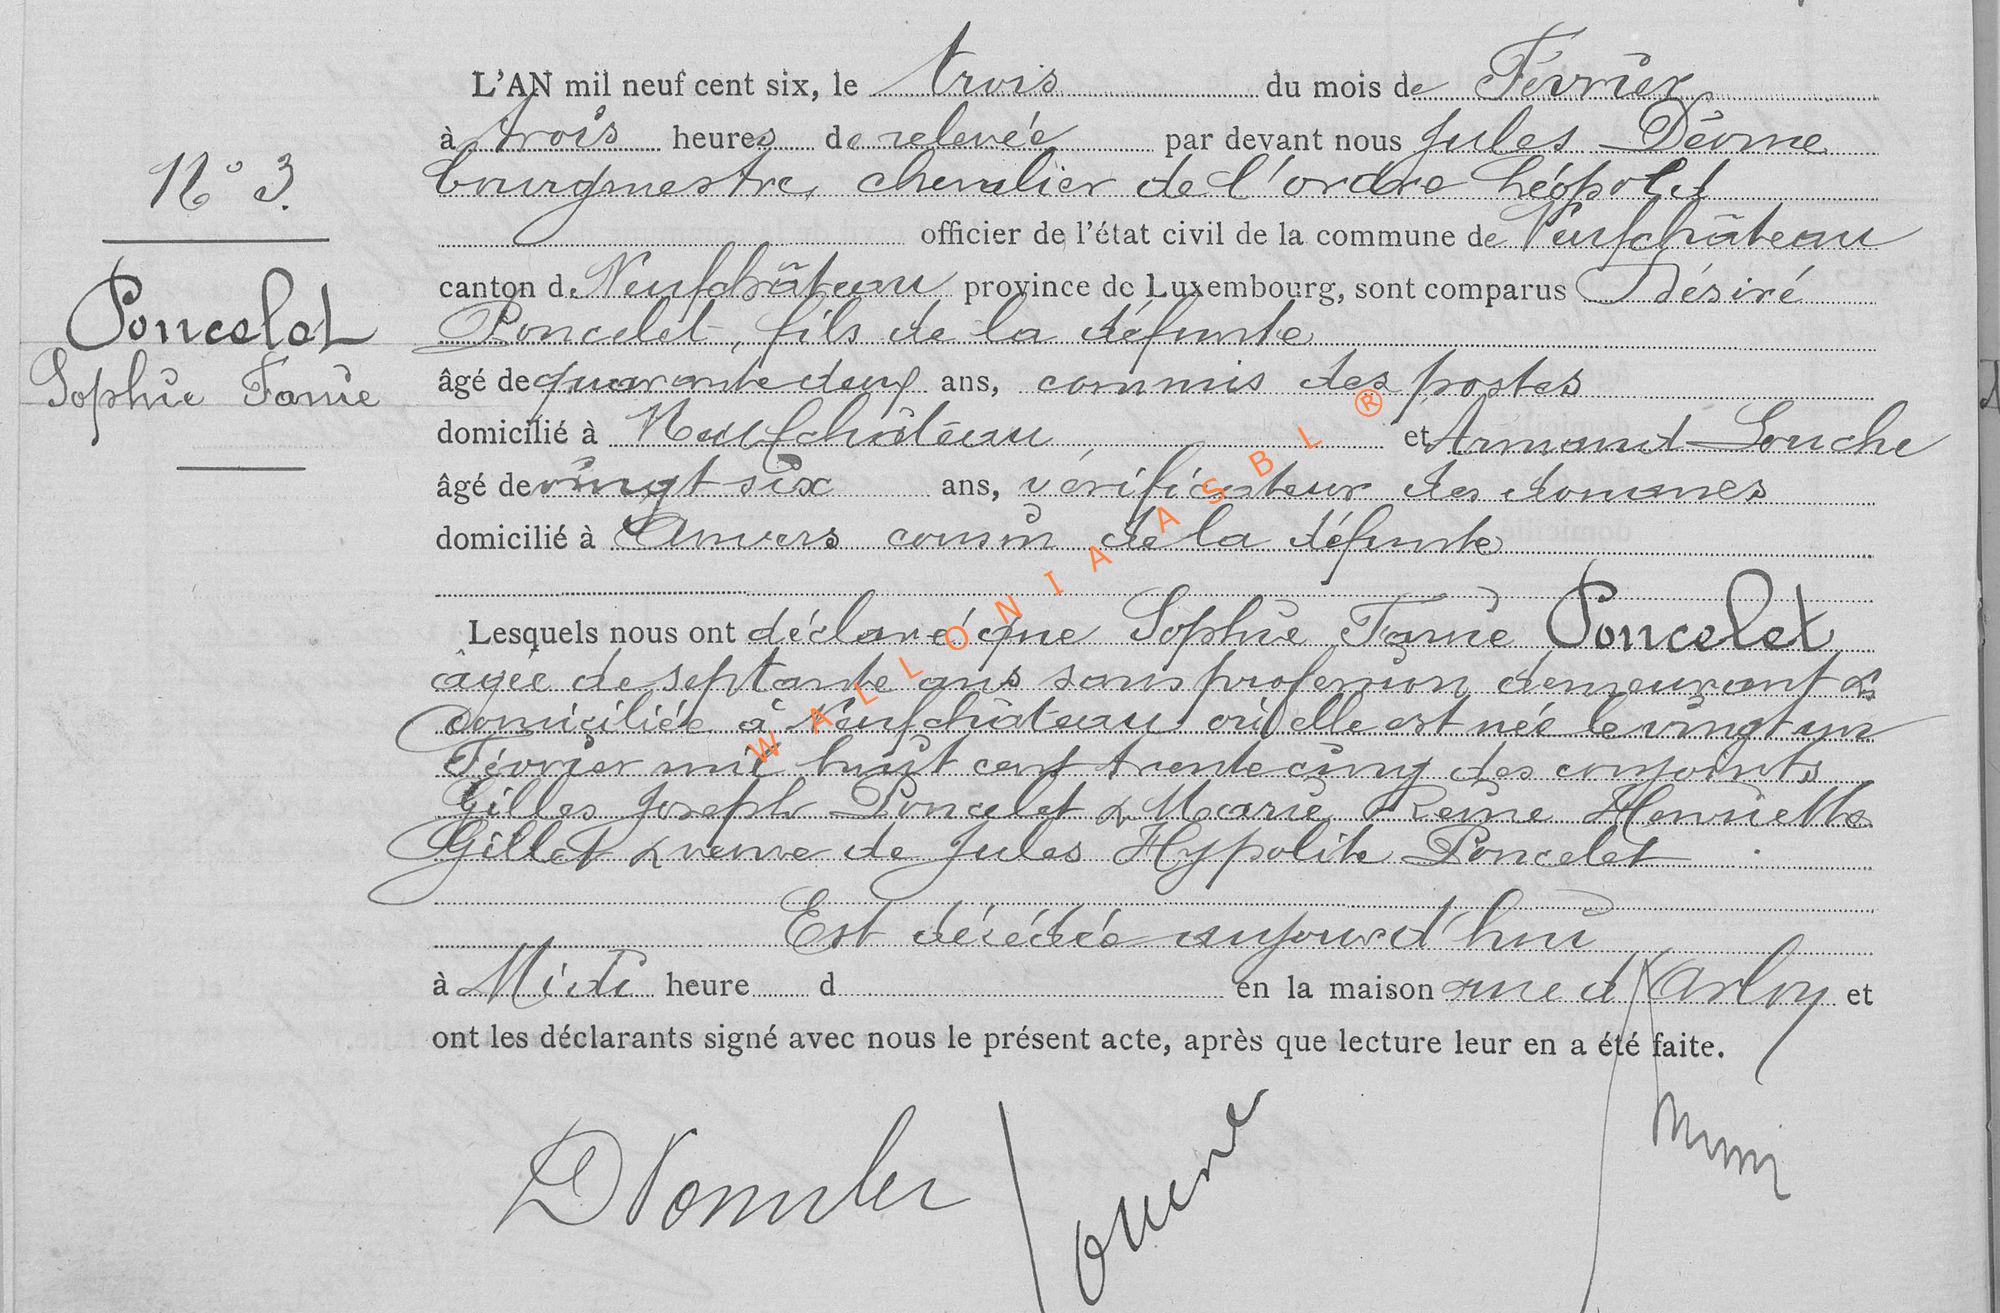 N° 3.
Poncelet
Sophie Fanie
L'AN mil neuf cent six, le trois du mois de Février
à trois heures de relevée par devant nous Jules
bourgmestre, chevalier de l'ordre Léopold
officier de l'état civil de la commune de Neufchâteau
canton de Neufchâteau province de Luxembourg, sont comparus Désiré
Poncelet, fils de la défunte
âgé de quarante deux ans, commis des postes
domicilié à Neufchâteau et Armand Louche
âgé de vingt six ans, vérificateur des douanes
domicilié à Anvers cousin de la défunte
Lesquels nous ont déclaré que Sophie Fanie Poncelet
âgée de septante ans sans profession demeurant &
domiciliée à Neufchâteau où elle est née le vingt un
Février mil huit cent trente cinq des conjoints
Gilles Joseph Poncelet & Marie Reine Henriette
Gillet & veuve de Jules Hypolite Poncelet
Est décédée aujourd'hui
à Midi heure d en la maison rue d'Arlon et
ont les déclarants signé avec nous le présent acte, après que lecture leur en a été faite.
WALLONIA ASBL ®